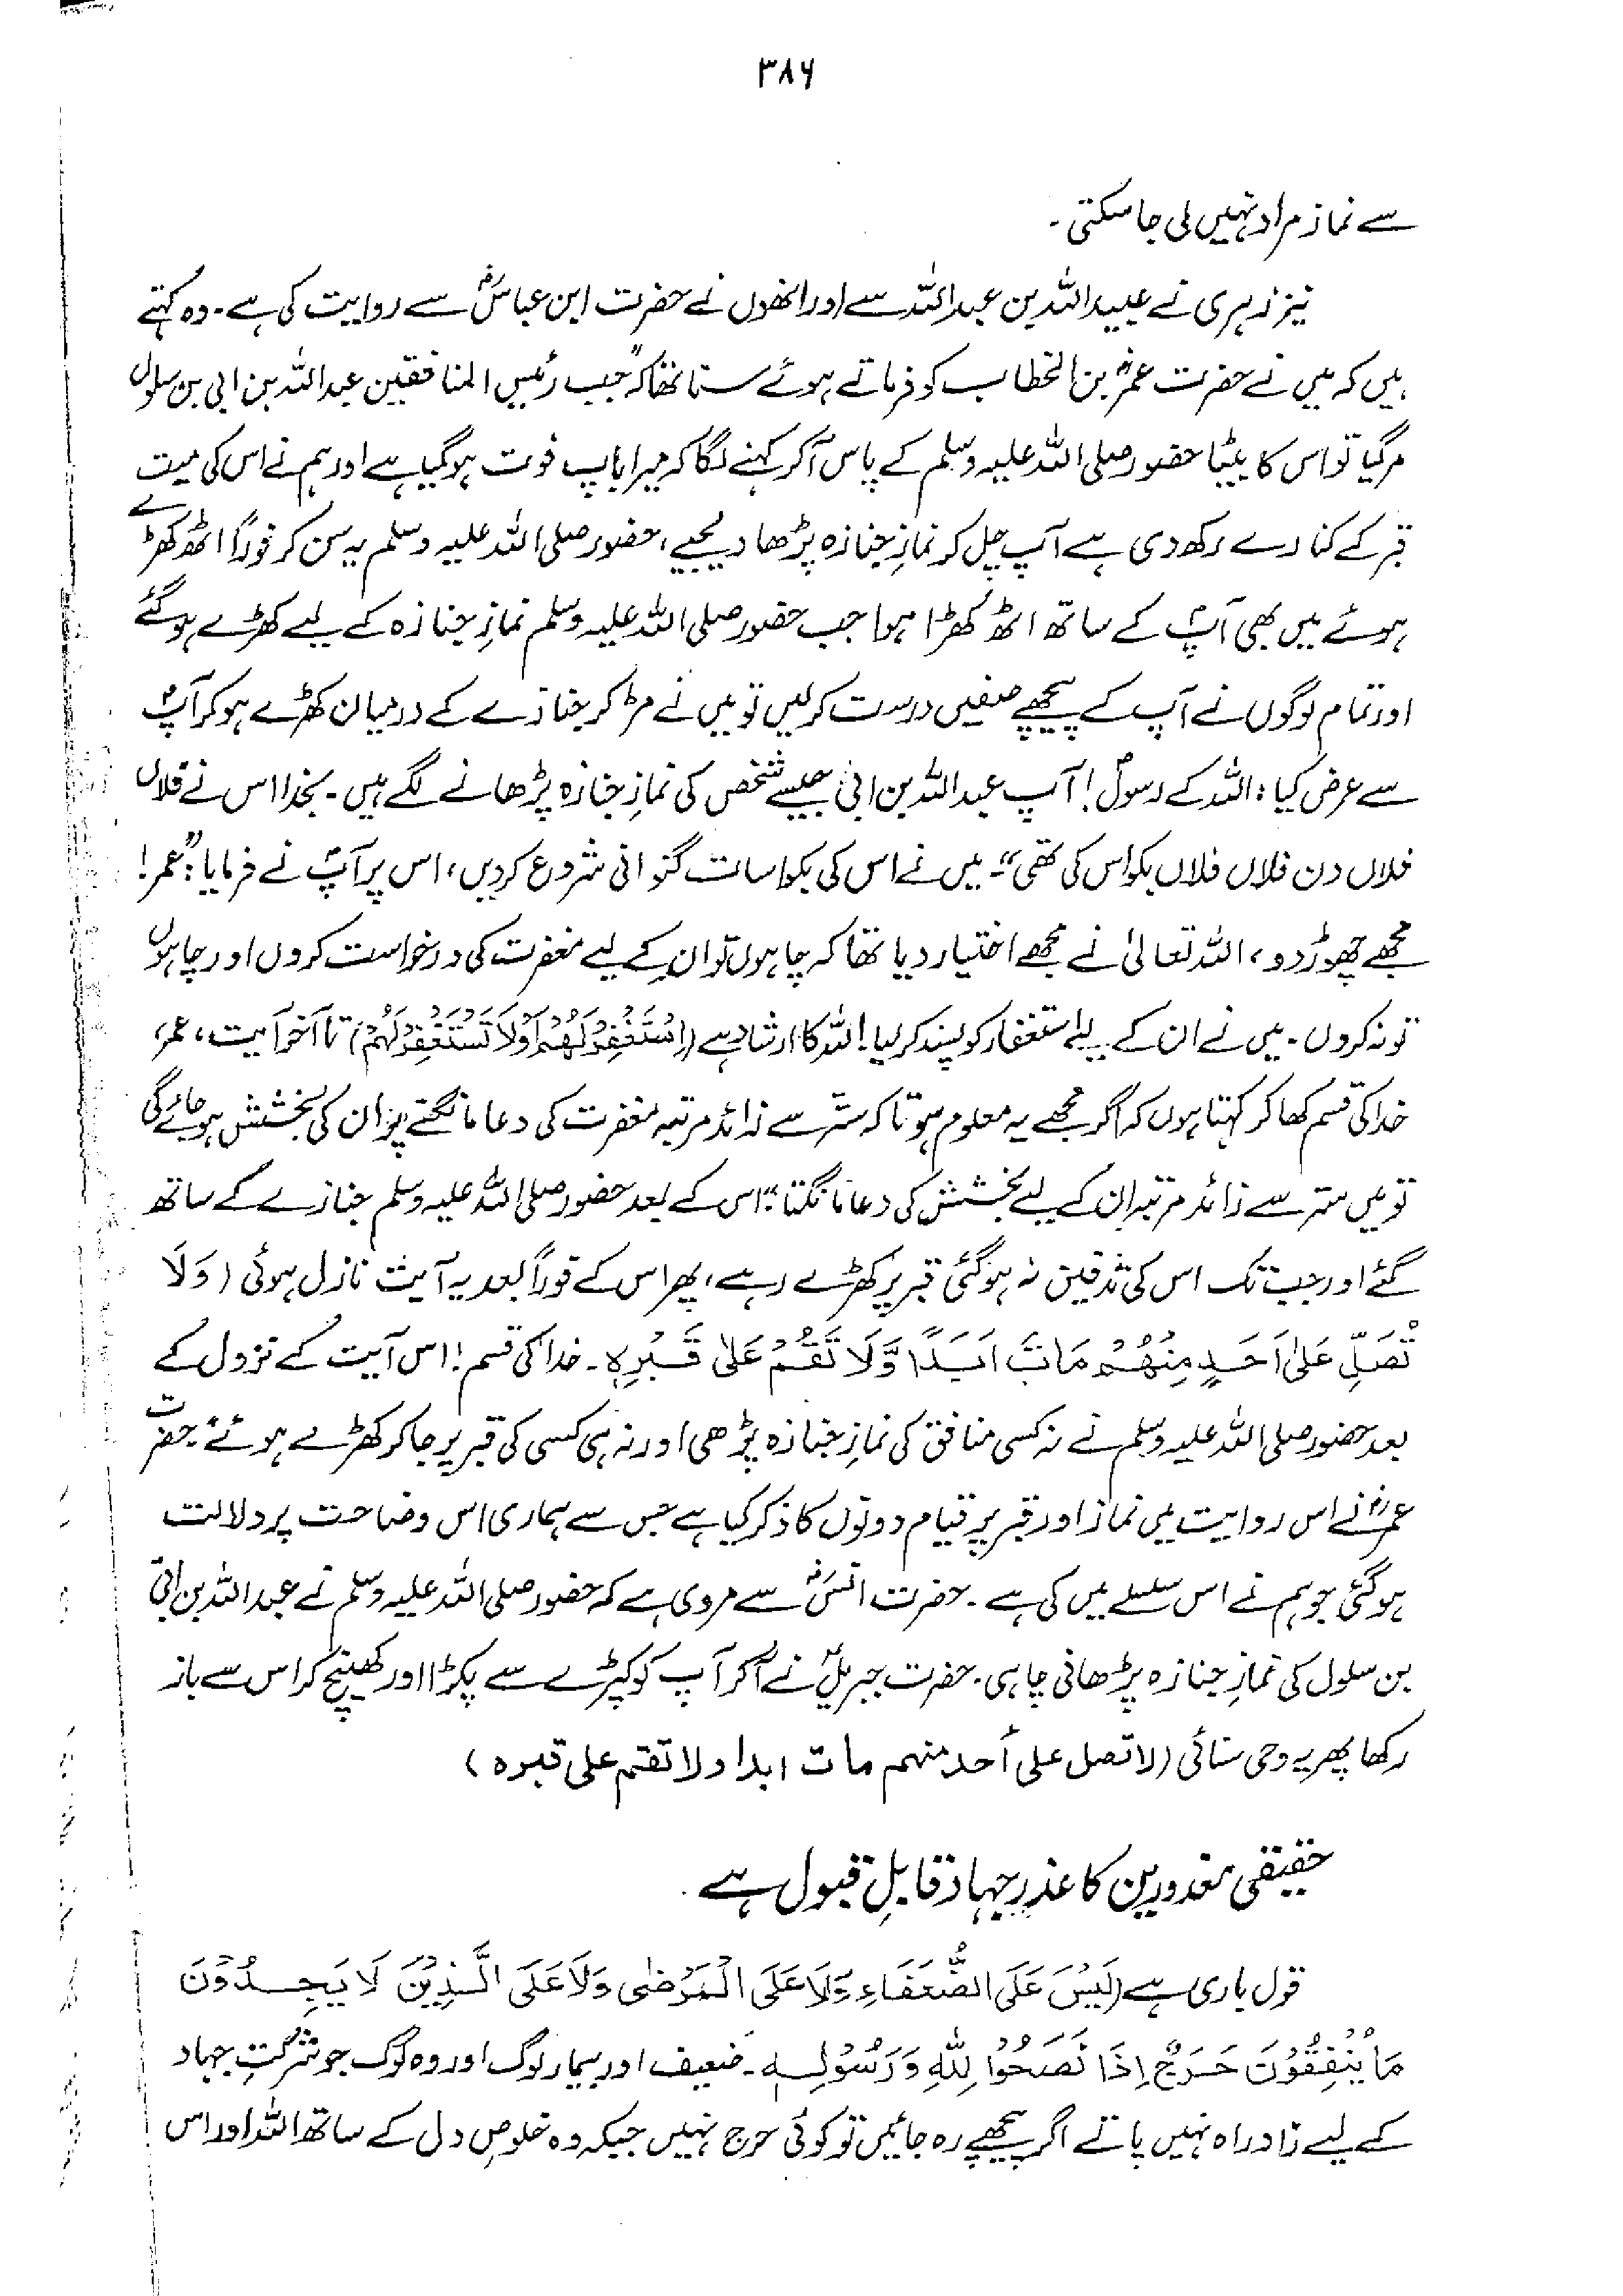 ۳۸۶
سے نماز مراد نہیں لی جا سکتی۔
نیز زہری نے عبیداللہ بن عبداللہ سے اور انھوں نے حضرت ابن عباسؓ سے روایت کی ہے۔ وہ کہتے
ہیں کہ میں نے حضرت عمرؓ بن الخطاب کو فرماتے ہوئے سنا تھا کہ "جب رئیس المنافقین عبداللہ بن ابی بن سلول
مر گیا تو اس کا بیٹا حضور صلی اللہ علیہ وسلم کے پاس آ کر کہنے لگا کہ میرا باپ فوت ہو گیا ہے اور ہم نے اس کی میت
قبر کے کنارے رکھ دی ہے آپ چل کر نمازِ جنازہ پڑھا دیجیے، حضور صلی اللہ علیہ وسلم یہ سن کر فوراً اٹھ کھڑے
ہوئے میں بھی آپؐ کے ساتھ اٹھ کھڑا ہوا جب حضور صلی اللہ علیہ وسلم نمازِ جنازہ کے لیے کھڑے ہو گئے
اور تمام لوگوں نے آپ کے پیچھے صفیں درست کر لیں تو میں نے مڑ کر جنازے کے درمیان کھڑے ہو کر آپؐ
سے عرض کیا: اللہ کے رسولؐ! آپ عبداللہ بن ابیّ جیسے شخص کی نمازِ جنازہ پڑھانے لگے ہیں۔ بخدا اس نے فلاں
فلاں دن فلاں فلاں بکواس کی تھی"۔ میں نے اس کی بکواسات گنوانی شروع کر دیں، اس پر آپؐ نے فرمایا: "عمر!
مجھے چھوڑ دو، اللہ تعالیٰ نے مجھے اختیار دیا تھا کہ چاہوں تو ان کے لیے مغفرت کی درخواست کروں اور چاہوں
تو نہ کروں۔ میں نے ان کے لیے استغفار کو پسند کر لیا! اللہ کا ارشاد ہے (اِسْتَغْفِرْ لَهُمْ اَوْ لَا تَسْتَغْفِرْ لَهُمْ) تا آخر آیت، عمر،
خدا کی قسم کھا کر کہتا ہوں کہ اگر مجھے یہ معلوم ہوتا کہ ستّر سے زائد مرتبہ مغفرت کی دعا مانگنے پر ان کی بخشش ہو جائے گی
تو میں ستر سے زائد مرتبہ ان کے لیے بخشش کی دعا مانگتا"؛ اس کے بعد حضور صلی اللہ علیہ وسلم جنازے کے ساتھ
گئے اور جب تک اس کی تدفین نہ ہو گئی قبر پر کھڑے رہے، پھر اس کے فوراً بعد یہ آیت نازل ہوئی (وَلَا
تُصَلِّ عَلٰی اَحَدٍ مِنْهُمْ مَاتَ اَبَدًا وَّلَا تَقُمْ عَلٰی قَبْرِهٖ۔ خدا کی قسم! اس آیت کے نزول کے
بعد حضور صلی اللہ علیہ وسلم نے نہ کسی منافق کی نمازِ جنازہ پڑھی اور نہ ہی کسی کی قبر پر جا کر کھڑے ہوئے" حضرت
عمرؓ نے اس روایت میں نماز اور قبر پر قیام دونوں کا ذکر کیا ہے جس سے ہماری اس وضاحت پر دلالت
ہو گئی جو ہم نے اس سلسلے میں کی ہے۔ حضرت انسؓ سے مروی ہے کہ حضور صلی اللہ علیہ وسلم نے عبداللہ بن ابیّ
بن سلول کی نمازِ جنازہ پڑھانی چاہی۔ حضرت جبریلؑ نے آ کر آپ کو کپڑے سے پکڑا اور کھینچ کر اس سے باز
رکھا پھر یہ وحی سنائی (لا تصل علی أحد منهم مات ابدا ولا تقم علی قبره)
حقیقی معذورین کا عذرِ جہاد قابلِ قبول ہے
قول باری ہے (لَيْسَ عَلَى الضُّعَفَاءِ وَلَا عَلَى الْمَرْضٰى وَلَا عَلَى الَّذِيْنَ لَا يَجِدُوْنَ
مَا يُنْفِقُوْنَ حَرَجٌ اِذَا نَصَحُوْا لِلّٰهِ وَرَسُوْلِهٖ۔ ضعیف اور بیمار لوگ اور وہ لوگ جو شرکتِ جہاد
کے لیے زادِ راہ نہیں پاتے اگر پیچھے رہ جائیں تو کوئی حرج نہیں جبکہ وہ خلوصِ دل کے ساتھ اللہ اور اس